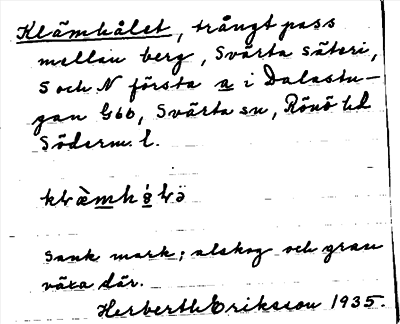 Klämhålet, trångt pass
mellan berg, Svärta säteri,
S och N första a i Dalastu-
gan Gbb, Svärta sn, Rönö hd
Söderm. l.
Sank mark; alskog och gran
växa där.
Herbert Eriksson 1935.